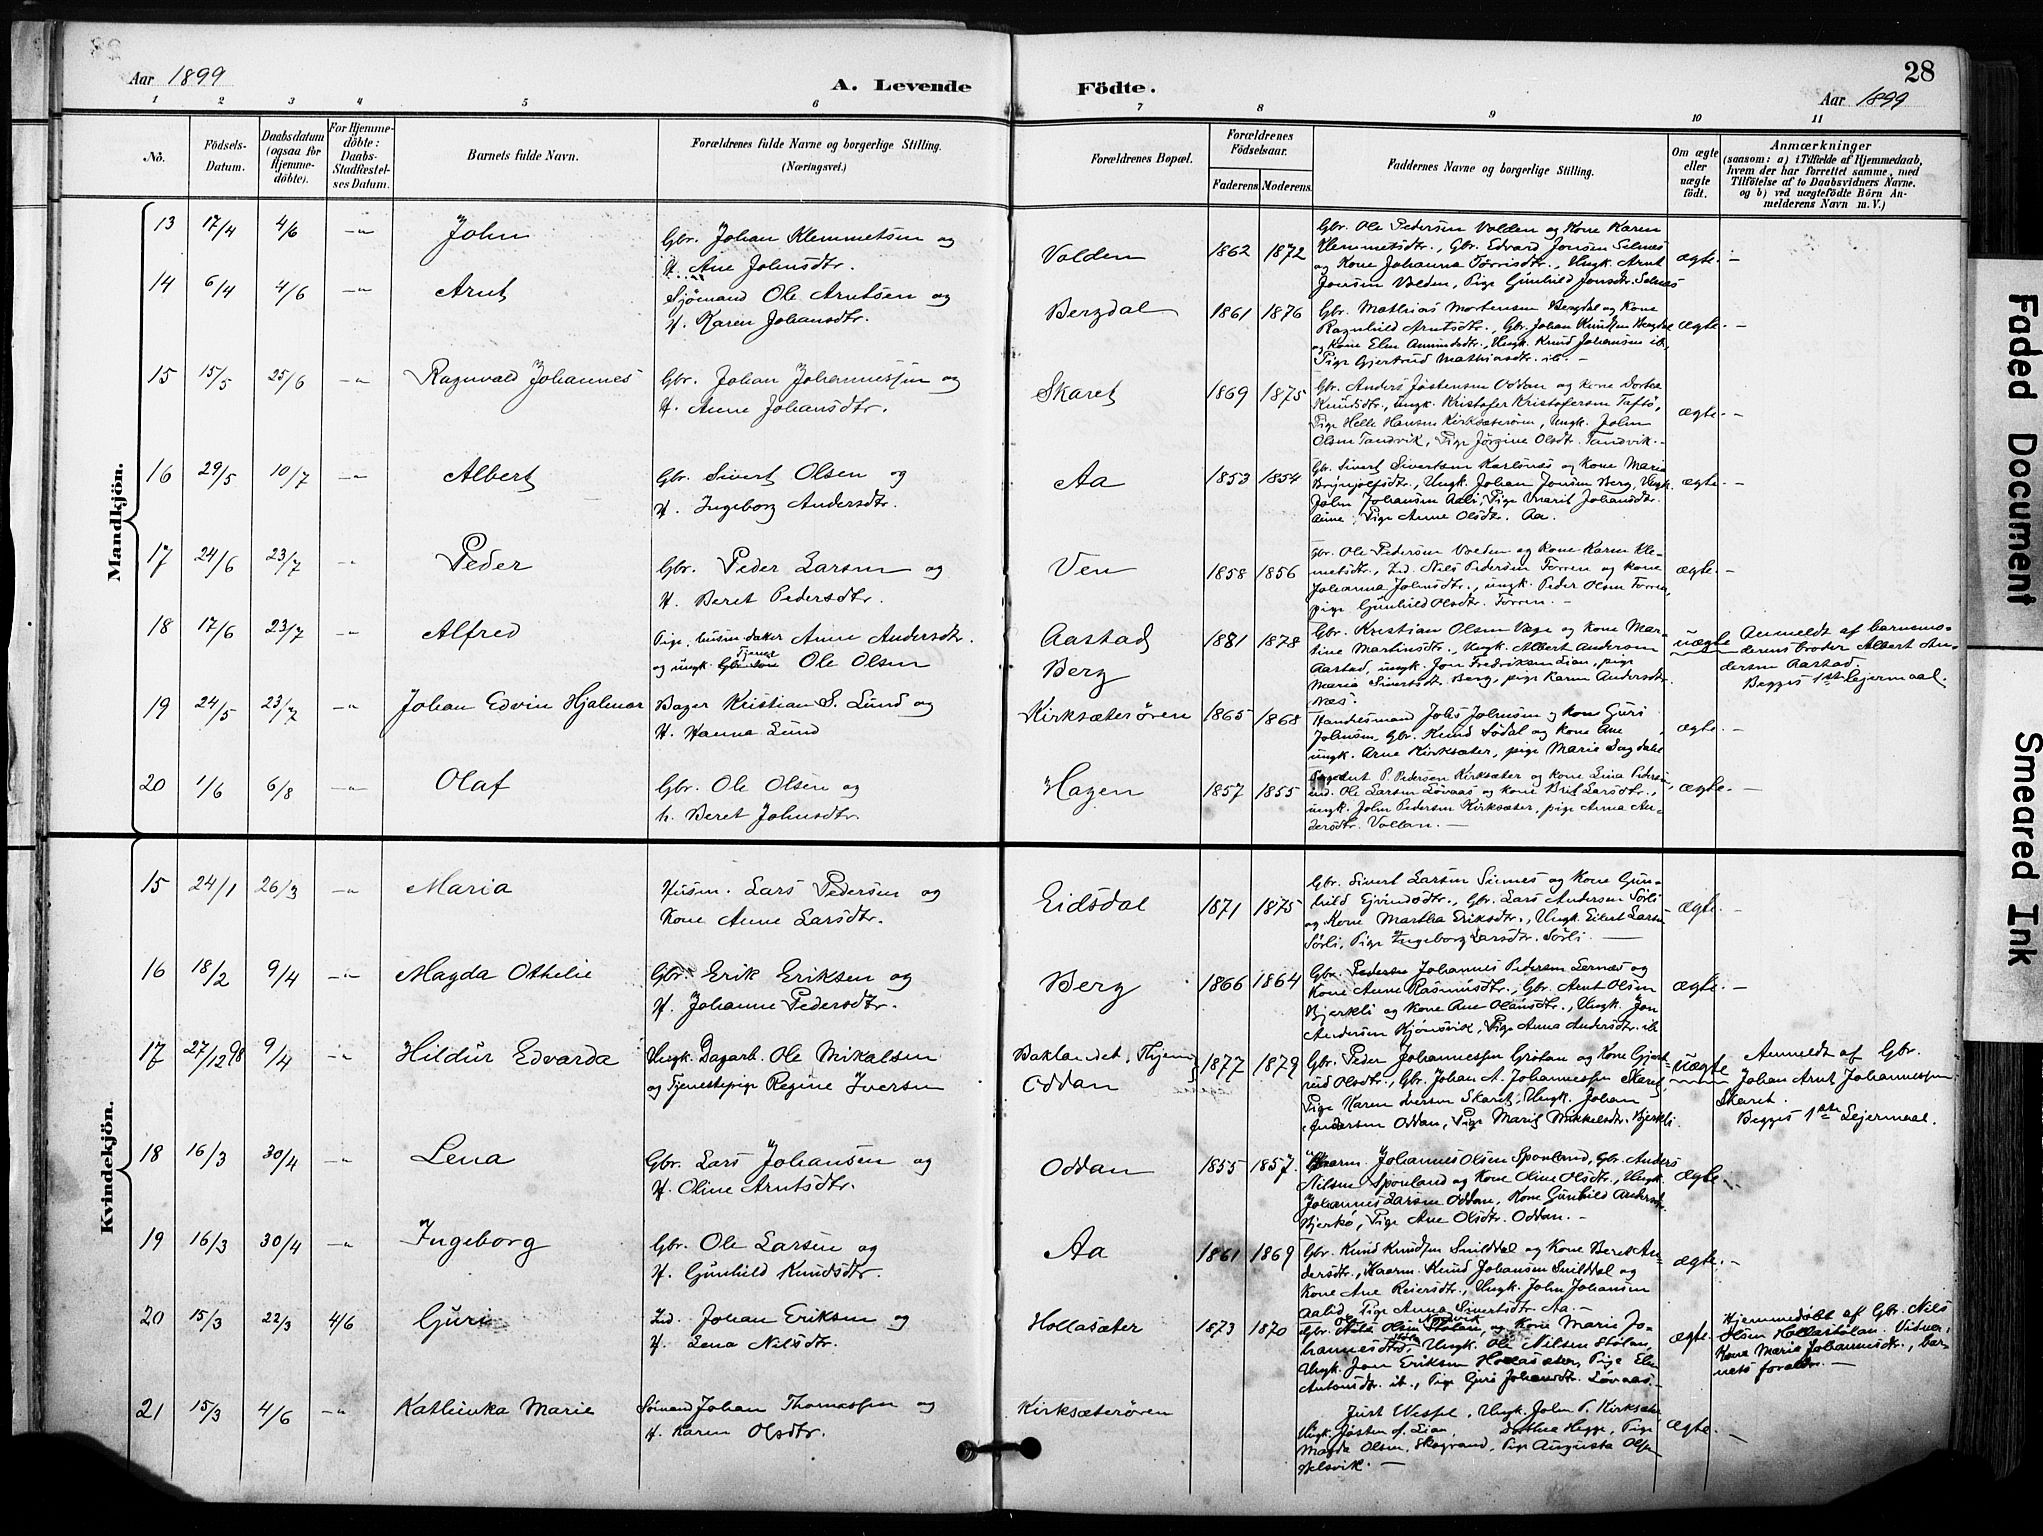 28
Aar 1899
A. Levende Födte.
Aar 1899
1 2 3 4 5 6 7 8 9 10 11
No.
Födsels-
Datum.
Daabsdatum
(ogsaa for
Hjemme-
döbte).
For Hjemme-
döbte:
Daabs-
Stadfæstel-
ses Datum.
Barnets fulde Navn.
Forældrenes fulde Navne og borgerlige Stilling.
(Næringsvei.)
Forældrenes Bopæl.
Forældrenes
Födselsaar.
Faderens. Moderens.
Faddernes Navne og borgerlige Stilling.
Om ægte
eller
uægte
födt.
Anmærkninger
(saasom: a) i Tilfælde af Hjemmedaab,
hvem der har forrettet samme, med
Tilföielse af to Daabsvidners Navne.
og b) ved uægtefödte Börn An-
melderens Navn m. V.)
Mandkjön.
13 17/4 4/6 -"- John
Gbr. Johan Klemmetsen og
H. Ane Johnsdtr.
Volden 1862 1872
Gbr. Ole Pedersen Volden og Kone Karen
Klemmetsdtr., Gbr. Edvard Jonsen Selnæs
og Kone Johanna Tørrisdtr., Ungk. Arnt
Jonsen Volden, Pige Gunhild Jonsdtr. Selnæs
ægte. -
14 6/4 4/6 -"- Arnt
Sjömand Ole Arntsen og
H. Karen Johansdtr.
Bergdal 1861 1876
Gbr. Mathias Mortensen Bergdal og Kone
Ragnhild Arntsdtr., Gbr. Johan Knudsen
og Kone Elen Amundsdtr., Ungk. Knud Johansen ib.,
Pige Gjertrud Mathiasdtr. ib. -
ægte. -
15 15/5 25/6 -"- Ragnvald Johannes
Gbr. Johan Johannessen og
H. Anne Johansdtr.
Skaret 1869 1875
Gbr. Anders Jøstensen Oddan og Kone Dorthea
Knudsdtr., Ungk. Kristofer Kristofersen Taftö,
Pige Helle Hansen Kirksæterören, Ungk. John
Olsen Tandvik, Pige Jørgine Olsdt. Tandvik. -
ægte. -
16 29/5 10/7 -"- Albert
Gbr. Sivert Olsen og
H. Ingeborg Andersdtr.
Aa 1853 1854
Gbr. Sivert Sivertsen Karlsnæs og Kone Maria
Brynjolfsdtr., Ungk. Johan Jonsen Berg, Ungk.
John Johansen Aali, Pige Marit Johansdtr.
Aune, Pige Anne Olsdt. Aa.
ægte. -
17 24/6 23/7 -"- Peder
Gbr. Peder Larsen og
H. Beret Pedersdtr.
Ven 1858 1856
Gbr. Ole Pedersen Volden og Kone Karen Kle-
metsdtr., Lid. Nils Pedersen Torren og Kone
Johanna Johnsdtr., ungk. Peder Olsen Torren,
pige Gunhild Olsdtr. Torren. -
ægte. -
18 17/6 23/7 -"- Alfred
Pige, husm. datter Anne Andersdtr.
og ungk. Tjener Ole Olsen
Aastad
Berg
1881 1878
Gbr. Kristian Olsen Vage og Kone Mar-
tine Martinsdtr., Ungk. Albert Andersen
Aastad, ungk. Jon Fredriksen Lian, pige
Maria Sivertsdt. Berg, pige Karen Andersdt.
Næs.
uægte
Anmeldt af barnemo-
derens broder Albert An-
dersen Aastad.
Begges 1ste Leiermaal.
19 24/5 23/7 -"- Johan Edvin Hjalmar
Bager Kristian S. Lund og
H. Hanna Lund
Kirksæterören 1865 1868
Handelsmand Johs Johnsen og Kone Guri
Johnsen, Gbr. Knud Södal og Kone Ane
ungk. Arne Kirksæter, pige Marie Dagdahl
ægte. -
20 1/6 6/8 -"- Olaf
Gbr. Ole Olsen og
h. Beret Johnsdtr.
Hagen 1857 1855
P. Pedersen Kirksæter og Kone Lina Pedersen,
Ole Larsen Løvaas og Kone Brit Larsdtr.,
ungk. John Pedersen Kirksæter, pige Anna An-
dersdtr. Vollan. -
ægte. -
Kvindekjön.
15 24/1 26/3 -"- Maria
Husm. Lars Pedersen og
Kone Anne Larsdtr.
Eidsdal 1871 1875
Gbr. Sivert Larsen Sinnes og Kone Gun-
hild Eivindsdtr., Gbr. Lars Andersen Sörli
og Kone Martha Eriksdtr., Ungk. Eilert Larsen
Sörli, Pige Ingeborg Larsdtr. Sörli. -
ægte. -
16 18/2 9/4 -"- Magda Othelie
Gbr. Erik Eriksen og
H. Johanne Pedersdtr.
Berg 1866 1864
Gbr. Johannes Pedersen Lernæs og
Kone Anne Rasmusdtr., Gbr. Arnt Olsen
Bjerkli og Kone Ane Olausdtr., Ungk. Jon
Andersen Kjönsvik, Pige Anna Andersdtr. ib
ægte. -
17 27/12 98 9/4 -"- Hildur Edvarda
Ungk. Dagarb. Ole Mikalsen
og Tjenestepige Regine Iversen
Baklandet, Thjem
Oddan
1877 1879
Gbr. Peder Johannessen Grötan og Kone Gjert-
rud Olsdtr., Gbr. Johan A. Johannessen Skaret,
Pige Karen Iversen Skaret, Ungk. Johan
Andersen Oddan, Pige Marit Mikkelsdtr. Bjerkli.
uægte
Anmeldt af Gbr.
Johan Arnt Johannessen
Skaret.
Begges 1ste Leiermaal.
18 16/3 30/4 -"- Lena
Gbr. Lars Johansen og
H. Oline Arntsdtr.
Oddan 1855 1857.
Johannes Olsen Sponland, Gbr. Anders
Nilsen Sponland og Kone Oline Olsdtr., Ungk.
Johannes Larsen Oddan, Kone Gunhild Andersdt.
Bjerkö, Pige Ane Olsdtr. Oddan. -
ægte. -
19 16/3 30/4 -"- Ingeborg
Gbr. Ole Larsen og
H. Gunhild Knudsdtr.
Aa 1861 1869
Gbr. Knud Knudsen Snilddal og Kone Beret An-
dersdtr., Kaarm. Knud Johansen Snilddal og
Kone Ane Reiersdtr., Ungk. John Johansen
Aalid, Pige Anna Sivertsdtr. Aa. -
ægte. -
20 15/3 22/3 4/6 Guri
Lid. Johan Eriksen og
H. Lena Nilsdtr.
Hollasæter 1873 1870
Gbr. Nils Olsen Stölan, og Kone Marie Jo-
hannesdtr., Ungk. Ole Nilsen Stölan,
Ungk. Jon Eriksen Hollasæter, Pige Elen
Antonsdtr. ib., Pige Guri Johansdt. Løvaas. -
ægte.
Hjemmedöbt af Gbr. Nils
Olsen Hollastölan. Vidner:
Kone Marie Johannesdtr., bar-
nets forældr. -
21 15/3 4/6 -"- Kathinka Marie
Sömand Johan Thomassen og
H. Karen Olsdtr.
Kirksæterören
Just Wessel, Ungk. John P. Kirksæter,
Ungk. Jøsten J. Lian, Dorthea Hegge, Pige
Magda Olsen, Skogrand, Pige Augusta Olsen
Helsvik. -
ægte. -
Faded Document
Smeared Ink